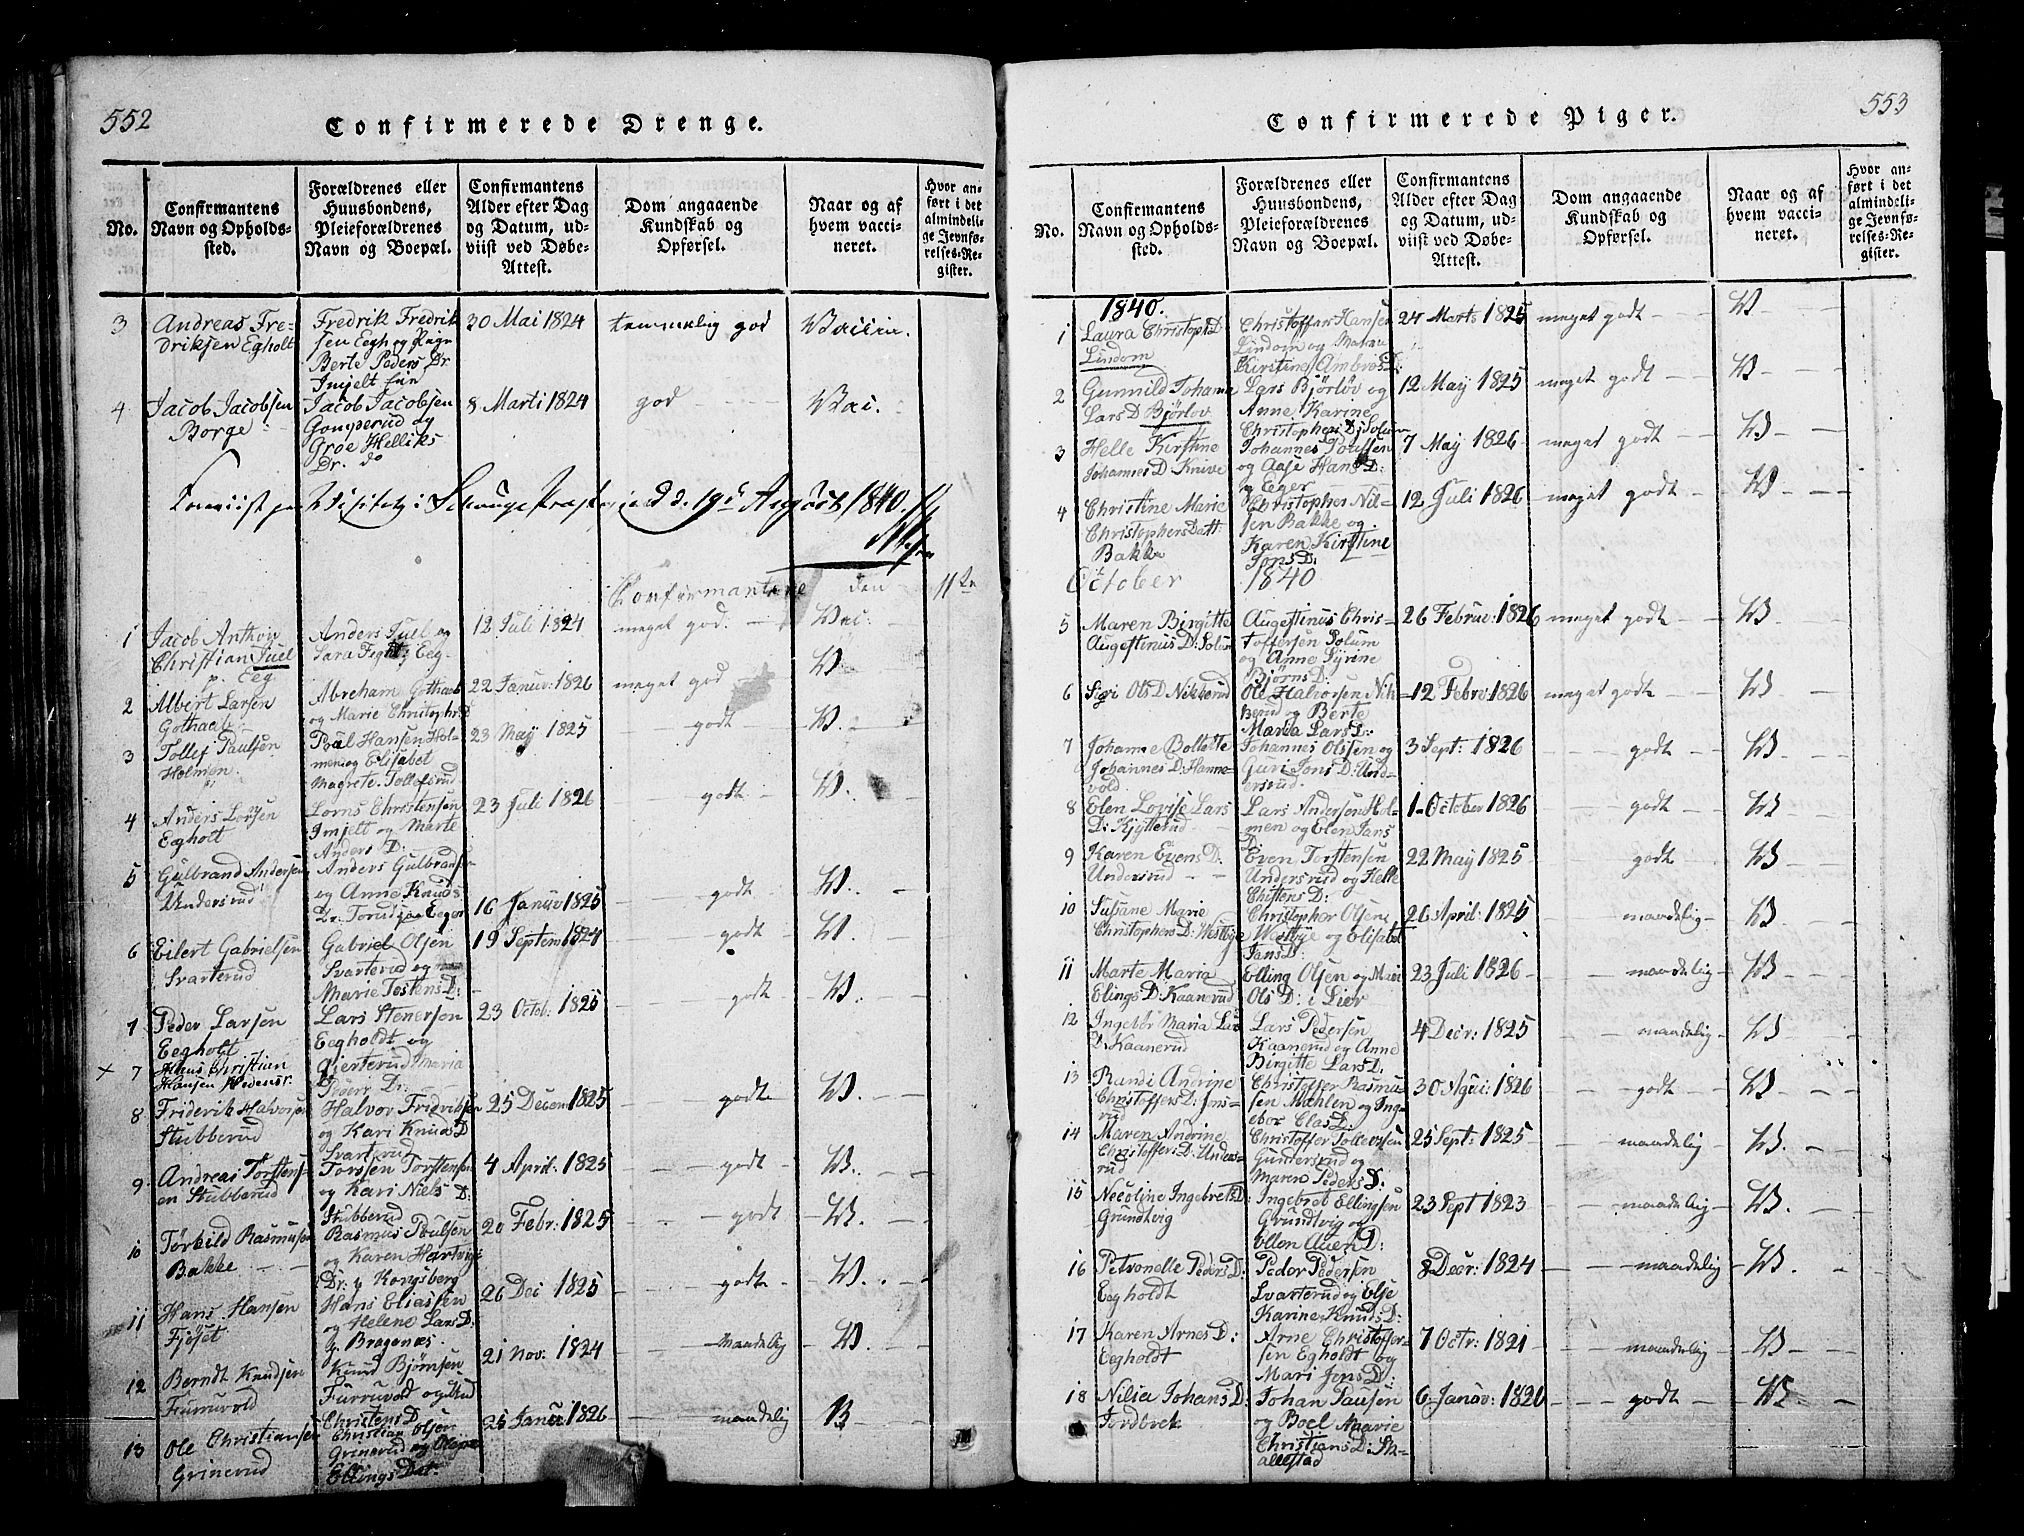 552
Confirmerede Drenge.
No.
Confirmantens Navn og Opholdssted.
Forældrenes eller Huusbondens, Pleieforældrenes Navn og Boepæl.
Confirmantens Alder efter Dag og Datum, udviist ved Døbe-Attest.
Dom angaaende Kundskab og Opførsel.
Naar og af hvem vaccineret.
Hvor anført i det almindelige Jevnførelses-Register.
3 Andreas Fredriksen Egholt
Fredrik Fredriksen Eegh og Berte Peders Dr.
30 Mai 1824
temmelig god
Vaccin.
4 Jacob Jacobsen Borge
Jacob Jacobsen og Groe Helliks Dr. do
8 Marti 1824
god
Vac.
d. 19de August 1840.
Confirmantene den 11te
1 Jacob Anthon Christian Juel p. Eeg
Anders Juel og Sara Eeg
12 Juli 1824
meget god
Vac:
2 Albert Larsen
Abreham og Marie Christophr D
22 Januv: 1826
meget god
V.
3 Tollef Paulsen Holmen
Poul Hansen Holmen og Elisabet Magrete Tollefsrud
23 May 1825
godt
V.
4 Anders Lorsen Egholt
Lorns Christensen Imjelt og Marte Anders D:
23 Juli 1826
godt
V.
5 Gulbrand Andersen Undersrud
Anders Gulbransen og Anne Knuds Dr. Eger
16 Januv 1825
godt
V.
6 Eilert Gabrielsen Svarterud
Gabriel Olsen Svarterud og Marie Tostens D:
19 Septem 1824
godt
V.
7 Peder Larsen Eegholt
Lars Stenersen Eegholdt og Maria Dr.
23 Octob: 1825
godt
V.
x 7 Hans Christian Hansen
8 Friderik Halvorsen Stubberud
Halvor Fridriksen og Kari Knuds D Svarterud
25 Decem 1825
godt
V.
9 Andreas Torstensen Stubberud
Torsten Torstensen og Kari Niels D: Stubberud
4 April: 1825
godt
V.
10 Torkild Rasmusen Bakke
Rasmus Poulsen og Karen Hartvigs Dr. p Kongsberg
20 Febr: 1825
godt
V.
11 Hans Hansen Fjøset
Hans Eliassen og Helene Lars D: p. Bragenæs
26 Dec 1825
godt
V.
12 Berndt Knudsen Furruvold
Knud Bjørnsen Furruvold og Christens D
21 Nov: 1824
maadelig
V.
13 Ole Christiansen Grinerud
Christian Olsen Grinerud og Ellings Dat:
25 Januv 1826
maadelig
V
553
Confirmerede Piger.
No.
Confirmantens Navn og Opholdssted.
Forældrenes eller Huusbondens, Pleieforældrenes Navn og Boepæl.
Confirmantens Alder efter Dag og Datum, udviist ved Døbe-Attest.
Dom angaaende Kundskab og Opførsel.
Naar og af hvem vaccineret.
Hvor anført i det almindelige Jevnførelses-Register.
1840.
1 Laura Christoph D Lindom
Christoffer Hansen Lindom og Maren Kirstine Ambros D:
24 Marts 1825
meget godt
V
2 Gunnild Johane Lars D Bjørlov
Lars Bjørløv og Anne Karine Christophers D: Solum
12 May 1825
meget godt
V
3 Helle Kirstine Johannes D: Knive
Johannes Polessen og Aase Hans D: p Eger
7 May 1826
meget godt
V
4 Christine Marie Christophers Datt: Bakke
Christopher Nilsen Bakke og Karen Kirstine Jons D:
12 Juli 1826
meget godt
V
October 1840
5 Maren Birgitte Augestinus D: Solum
Augestinus Christoffersen Solum og Anne Syrine Bjørns D:
26 Februv: 1826
meget godt
V
6 Sigri Ols D. Nikkerud
Ole Halvorsen Nikberud og Berte Maria Lars D:
12 Febrv 1826
meget godt
V
7 Johanne Bollette Johannes D: Hannevold
Johannes Olssen og Guri Jons D: Undersrud:
3 Sept: 1826
godt
V
8 Elen Lovise Lars D: Kjytterud
Lars Andersen Holmen og Elen Jans D:
1 October 1826
godt
V
9 Karen Evens D: Undersrud
Even Torstensen Undersrud og Helle Chistens D:
22 May 1825
godt
V
10 Susane Marie Christophers D: Westbye
Christopher Olsen Westbye og Elisabet Jans D:
26 April: 1825
maadelig
V
11 Marte Maria Elings D: Kaanerud
Elling Olsen og Mari Ols D: i Lier
23 Juli 1826
maadelig
V
12 Ingebor Maria Lars D. Kaanerud
Lars Pedersen Kaanerud og Anne Birgitte Lars D:
4 Decr: 1825
maadelig
V
13 Randi Andrine Christoffers D: Jonsrud
Christoffer Rasmusen Mæhlen og Ingebor Clas D:
30 Agus: 1826
godt
V
14 Maren Andrine Christoffers D: Undersrud
Christoffer Tollevsen Gundersrud og Maren Peders D:
25 Sept: 1825
maadelig
V.
15 Necoline Ingebrets D: Grundtvig
Ingebret Ellingsen Grundtvig og Ellen Auen D:
23 Sept 1823
maadelig
V.
16 Petronelle Peders D: Eegholdt
Peder Pedersen Svarterud og Else Karine Knuds D:
8 Decr: 1824
maadelig
V.
17 Karen Arnes D: Eegholdt
Arne Christoffersen Egholdt og Mari Jens D:
7 Octr: 1821
maadelig
V.
18 Nilia Johans D: Jordbrek
Johan Paulsen og Boel Maarie Christians D: Stallestad
6 Januv: 1826
godt
V